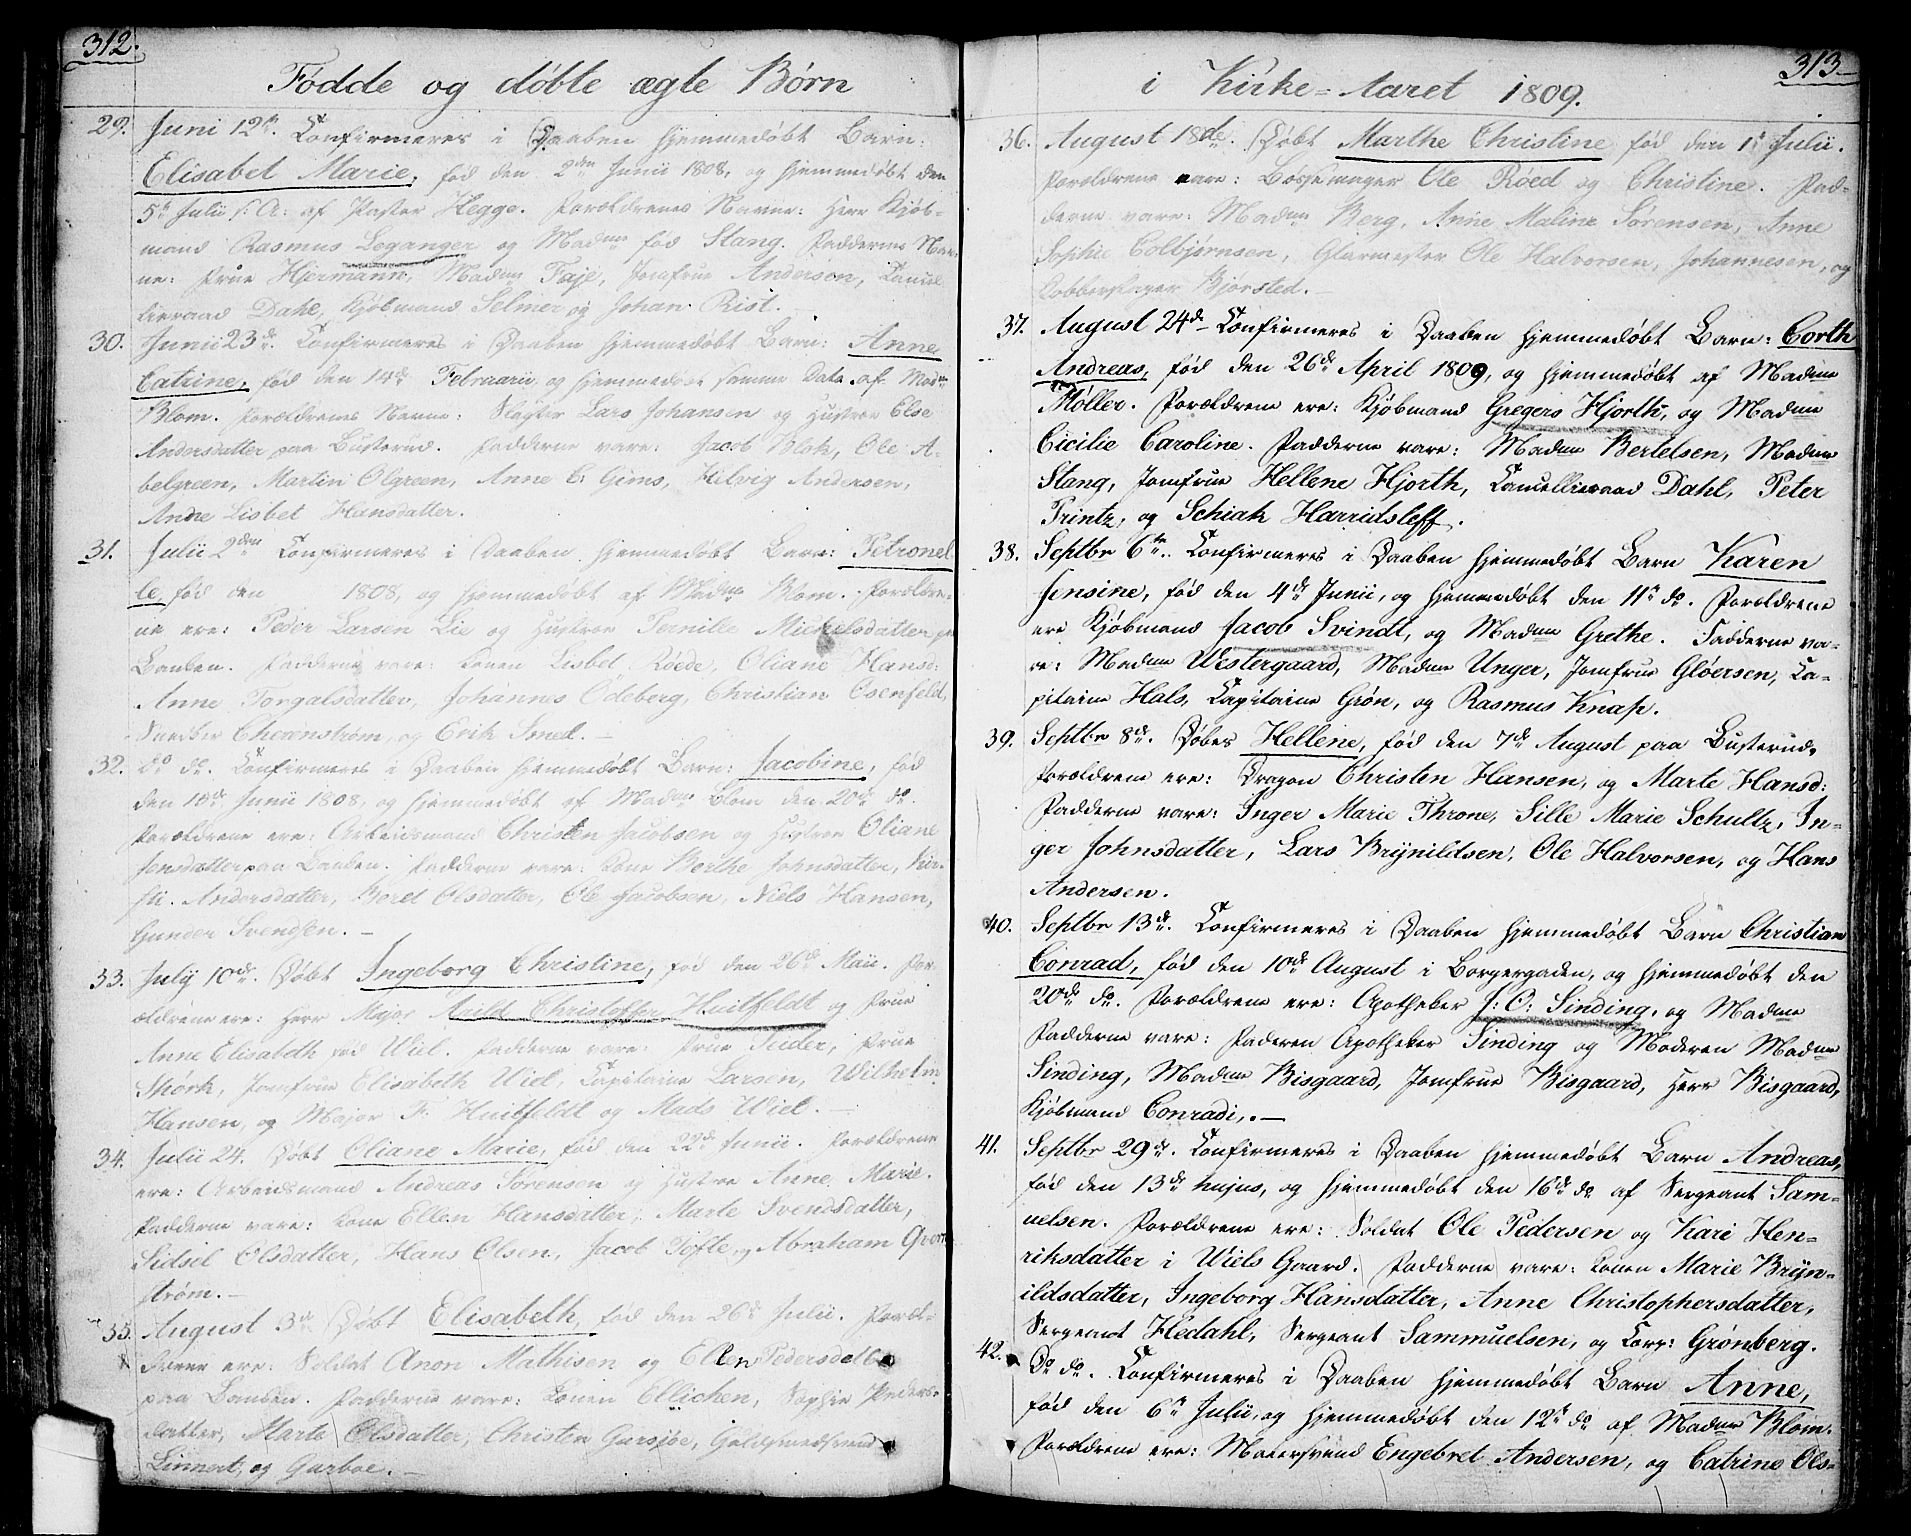 312.
Fødde og døbte ægte Børn
29. Juni 12te. Confirmeres i Daaben hjemmedøbt Barn:
Elisabet Marie, fød den 2den Junii 1808, og hjemmedøbt den
5te Julii s: A: af Pastor Hegge. Forældrenes Navne: Herr Kjøb-
mand Rasmus Leganger og Madme fød Stang. Faddernes Nav-
ne: Frue Hiermann, Madme Faje, Jomfrue Anderson, Cancel
lieraad Dahl, Kjøbmand Selmer og Johan Rist.
30. Junii 23de. Confirmeres i Daaben hjemmedøbt Barn: Anne
Catrine, fød den 14de Februarii, og hjemmedøbt samme Dato af Madme
Blom. Forældrenes Navne: Slagter Lars Johansen og Hustroe Else
Andersdatter paa Busterud. Fadderne vare: Jacob Blok, Ole A-
belgreen, Martin Olgreen, Anne C: Gims, Helvig Andersen,
Anne Lisbet Hansdatter.
31. Julii 2den Confirmeres i Daaben hjemmedøbt Barn: Petronel
le, fød den 1808, og hjemmedøbt af Madme Blom. Forældre-
ne ere: Peder Larsen Lie og Hustroe Pernille Michelsdatter paa
Banken. Fadderne vare: Konen Lisbet Røede, Oliane Hansd:
Anne Torgalsdatter, Johannes Ødeberg, Christian Osenfeld,
Snedker Cheanstrøm, og Erik Smed.
32. do do. Confirmeres i Daaben hjemmedøbt Barn: Jacobine, fød
den 18de Junii 1808, og hjemmedøbt af Madme Blom den 20de do.
Forældrene ere: Arbeidsmand Christen Jacobsen og Hustroe Oliane
Jensdatter paa Banken. Fadderne vare: Kone Berthe Johnsdatter, Kier-
sti Andersdatter, Beret Olsdatter, Ole Jacobsen, Niels Hansen,
Gunder Svendsen.
33. July 10de. Døbt Ingeborg Christine, fød den 26de Maii. For
ældrene ere: Herr Major Christoffer Huitfeldt og Frue
Anne Elisabeth fød Wiel. Fadderne vare: Frue Feider, Frue
Spørk, Jomfrue Elisabeth Wiel, Capitaine Larsen, Wilhelm
Hansen, og Major F. Huitfeldt og Mads Wiel.
34. Julii 24. Døbt Oliane Marie, fød den 22de Junii. Forældrene
ere: Arbeidsmand Andreas Sørensen og Hustroe Anne Marie.
Fadderne vare: Kone Ellen Hansdatter, Marte Svendsdatter,
Sidsel Olsdatter, Hans Olsen, Jacob Tofte, og Abraham Qvorn
strøm.
35. August 3de Døbt Elisabeth, fød den 26de Julii. Foræl-
drene ere: Soldat Anon Mathisen og Ellen Pedersdatter
paa Banken. Fadderne vare: Konen Ellichen, Sophie Peders-
datter, Marte Olsdatter, Christen Gursjøe, Guldsmedsvend
Linnert, og Garboe.
313
i Kirke-Aaret 1809.
36. August 18de. Døbt Marthe Christine fød den 1te Julii.
Forældrene vare: Bøssemager Ole Røed og Christine. Fad-
derne vare: Madme Berg, Anne Maline Sørensen, Anne
Sophie Colbjørnsen, Glarmester Ole Halvorsen, Johannesen, og
Kobberslager Bjorsted.
37. August 24de Confirmeres i Daaben hjemmedøbt Barn: Corth
Andreas, fød den 26de April 1809, og hjemmedøbt af Madme
Møller. Forældrene ere: Kjøbmand Gregers Hjorth, og Madme
Cicilie Caroline. Fadderne vare: Madme Bertelsen, Madme
Stang, Jomfrue Hellene Hjorth, Cancellieraad Dahl, Peter
Printz, og Schiak Harridsleff.
38. Septbr 6te. Confirmeres i Daaben hjemmedøbt Barn Karen
Jensine, fød den 4de Junii, og hjemmedøbt den 11te do. Forældrene
ere Kjøbmand Jacob Svindt, og Madme Grethe. Fadderne va-
re: Madme Westergaard, Madme Unger, Jomfrue Gløersen, Ca-
pitaine Hals, Capitaine Grøn, og Rasmus Knap.
39. Septbr 8de. Døbes Hellene, fød den 7de August paa Busterud.
Forældrene ere: Dragon Christen Hansen, og Marte Hansd:
Fadderne vare: Inger Marie Throne, Sille Marie Schultz, In-
ger Johnsdatter, Lars Brynildsen, Ole Halvorsen, og Hans
Andersen.
40. Septbr 13de. Confirmeres i Daaben hjemmedøbt Barn Christian
Conrad, fød den 10de August i Borgergaden, og hjemmedøbt den
20de do. Forældrene ere: Apotheker J: O: Sinding, og Madme
Fadderne vare: Faderen Apotheker Sinding og Moderen Madme
Sinding, Madme Bisgaard, Jomfrue Bisgaard, Herr Bisgaard,
Kjøbmand Conradi,.
41. Septbr 29de. Confirmeres i Daaben hjemmedøbt Barn Andreas,
fød den 13de hujus, og hjemmedøbt den 16de do af Sergeant Sam-
uelsen. Forældrene ere: Soldat Ole Pedersen og Kari Hen-
riksdatter i Wiels Gaard. Fadderne vare: Konen Marie Bryn-
ildsdatter, Ingeborg Hansdatter, Anne Christophersdatter,
Sergeant Hedahl, Sergeant Sammuelsen, og Corp: Grønberg.
42. do do. Confirmeres i Daaben hjemmedøbt Barn Anne,
fød den 6te Julii, og hjemmedøbt den 12te do af Madme Blom.
Forældrene ere: Muursvend Engebret Andersen, og Catrine Ols-